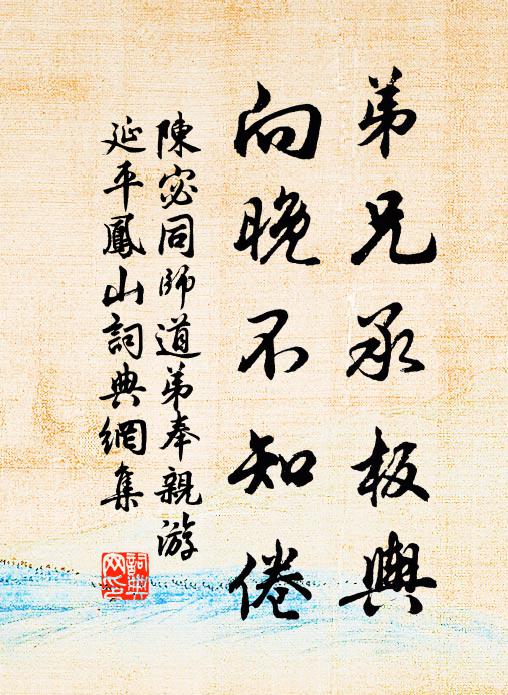 弟兄承板輿
向晚不知倦
陳宓同師道弟奉親游
延平鳳山詞典網集